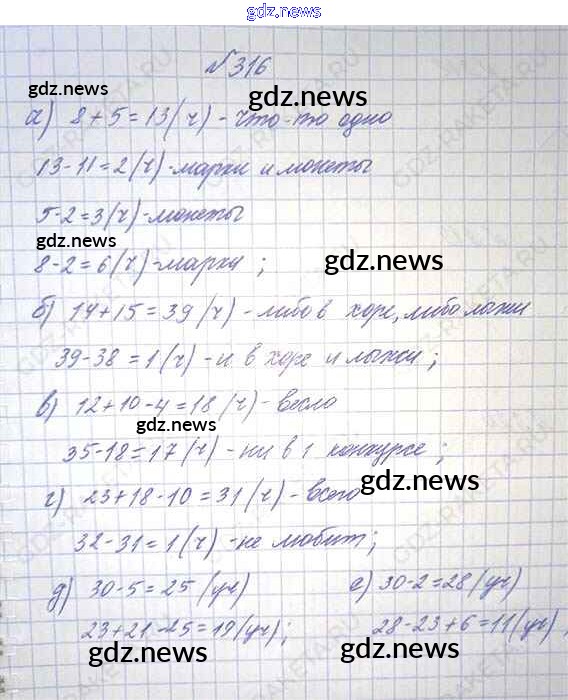 gdz.news
№316
gdz.news
gdz.news
а) 8+5=13(ч) - что-то одно
13-11=2(ч)-марки и монеты
5-2=3(ч)-монеты
gdz.news
8-2=6(ч)-марки ;
gdz.news
б) 14+15=39(ч)-либо в хоре, либо лыжи
39-38=1(ч)-и в хоре и лыжи;
в) 12+10-4=18(ч)-всего
gdz.news
35-18=17(ч)-ни в 1 конкурсе;
gdz.news
г) 23+18-10=31(ч)-всего
32-31=1(ч)-не любит;
д) 30-5=25(уч) е) 30-2=28(уч)
23+21-25=19(уч); 28-23+6=11(уч),
gdz.news gdz.news
GDZ-RAKETA.RU